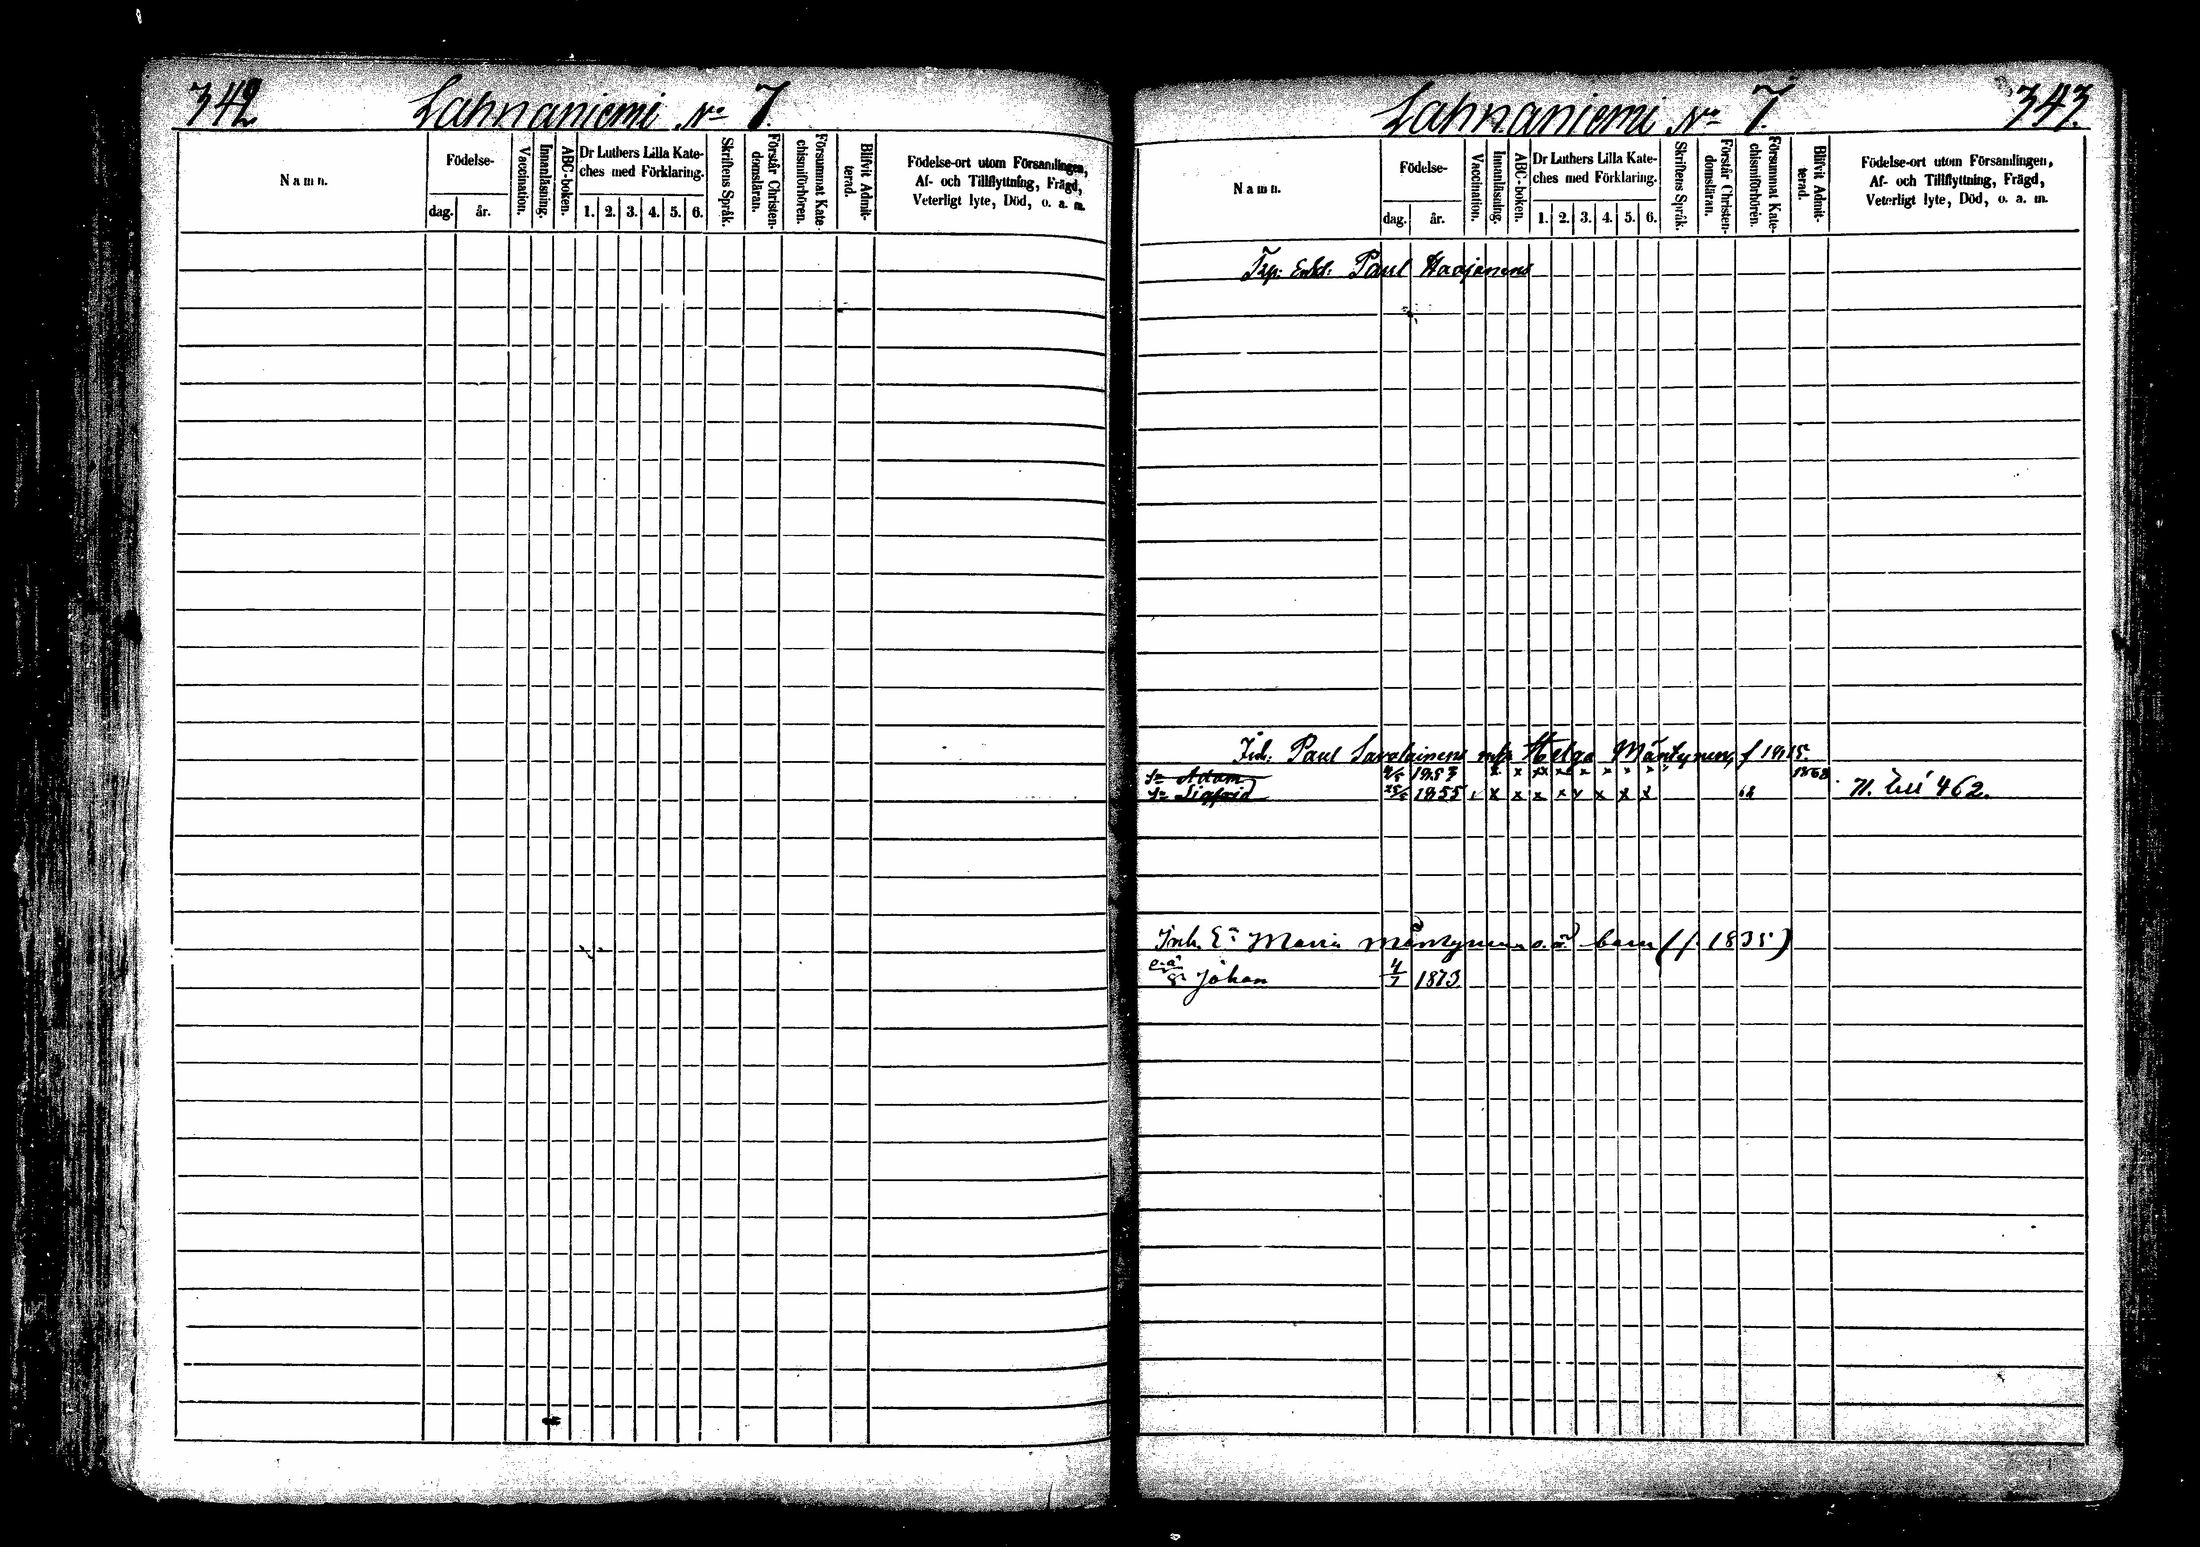 342 Lahnaniemi No 7.
Namn.
Födelse-
dag. år.
Vaccination.
Innanläsning.
ABC-boken.
Dr Luthers Lilla Kate-
ches med Förklaring.
1. 2. 3. 4. 5. 6.
Skriftens Språk.
Förstår Christen-
domsläran.
Försummat Kate-
chismiförhören.
Blifvit Admit-
terad.
Födelse-ort utom Församlingen,
Af- och Tillflyttning, Frägd,
Veterligt lyte, Död, o. a. m.
Lahnaniemi No 7. 343.
Namn.
Födelse-
dag. år.
Vaccination.
Innanläsning.
ABC-boken.
Dr Luthers Lilla Kate-
ches med Förklaring.
1. 2. 3. 4. 5. 6.
Skriftens Språk.
Förstår Christen-
domsläran.
Försummat Kate-
chismiförhören.
Blifvit Admit-
terad.
Födelse-ort utom Församlingen,
Af- och Tillflyttning, Frägd,
Veterligt lyte, Död, o. a. m.
Paul Haajanens
Paul Savolainens Helga Mäntynen, f 1815.
Sn Adam 1853 x x x x x x x x 1868
Sn Sigfrid 25/5 1855 x x x x x x x x 62 N. 462.
Inh. Maria Mäntynen o. ä. barn (f. 1835)
o.ä. Sn Johan 4/7 1873